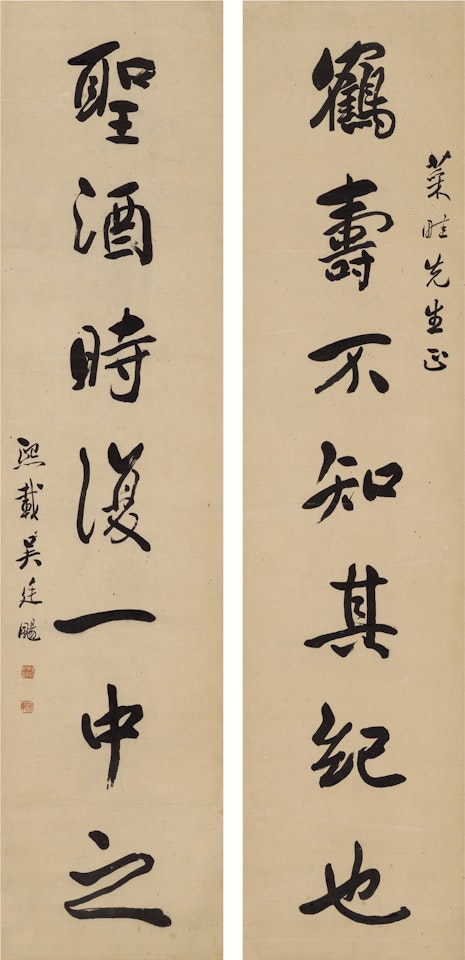 菜畦先生正
鶴壽不知其紀也
聖酒時復一中之
熙載吳廷颺